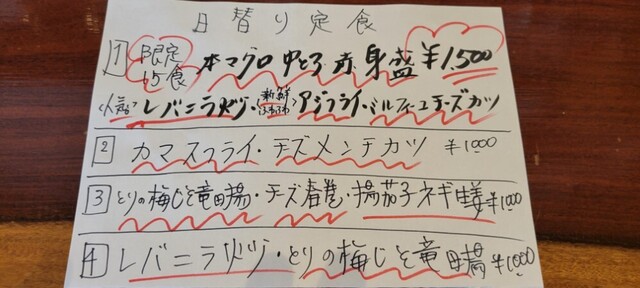 日替り定食
1 限定15食 本マグロ中とろ赤身盛 ¥1,500
<人気> レバニラ炒め・(新鮮ふわふわ)アジフライ・ミルフィーユチーズカツ
2 カマスフライ・チーズメンチカツ ¥1000
3 とりの梅じそ竜田揚・チーズ春巻・揚茄子ネギ生姜 ¥1000
4 レバニラ炒め・とりの梅じそ竜田揚 ¥1000